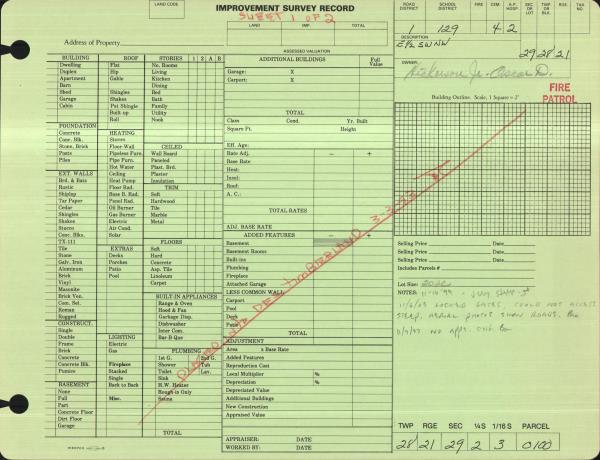 IMPROVEMENT SURVEY RECORD
SHEET 1 OF 2
LAND CODE
LAND
IMP.
TOTAL
ROAD DISTRICT
SCHOOL DISTRICT
FIRE
CEM.
A.P. HOSP.
SEC OR LOT
TWP OR BLK
RGE.
TAX NO.
1 129 4 2
DESCRIPTION
E1/2 SW NW
29 28 21
Address of Property
ASSESSED VALUATION
OWNER
Dickerson Jr. Oscar D.
FIRE PATROL
BUILDING ROOF STORIES 1 2 A B
Dwelling Flat No. Rooms
Duplex Hip Living
Apartment Gable Kitchen
Barn Dining
Shed Shingles Bed
Garage Shakes Bath
Cabin Pat Shingle Family
Built-up Utility
Roll Nook
FOUNDATION
Concrete HEATING
Concrete Blk. Stoves
Stone, Brick Floor Wall CEILED
Posts Pipeless Furn. Wall Board
Piles Pipe Furn. Paneled
Hot Water Plast. Brd.
EXT. WALLS Ceiling Plaster
Brd. & Bats Heat Pump Insulation
Rustic Floor Rad. TRIM
Shiplap Base B. Rad. Soft
Tar Paper Panel Rad. Hardwood
Cedar Oil Burner Tile
Shingles Gas Burner Marble
Shakes Electric Metal
Stucco Air Cond.
Conc. Blks. Solar FLOORS
TX-111 Soft
Tile EXTRAS Soft
Stone Decks Hard
Galv. Iron Porches Concrete
Aluminum Patio Asp. Tile
Brick Pool Linoleum
Vinyl Carpet
Masonite
Brick Ven. BUILT-IN APPLIANCES
Com. Sel. Range & Oven
Roman Hood & Fan
Rugged Garbage Disp.
CONSTRUCT. Dishwasher
Single Inter Com.
Double LIGHTING Bar-B-Que
Frame Electric
Brick Gas PLUMBING
Concrete 1st G. 2nd G.
Concrete Blk. Fireplace Shower Tub
Pumice Stacked Toilet Lav.
Single Sink
BASEMENT Back to Back H.W. Heater
None Rough-in Only
Full Misc. Satins
Part
Concrete Floor
Dirt Floor
Garage TOTAL
ADDITIONAL BUILDINGS Full Value
Garage: X
Carport: X
TOTAL
Class Cond. Yr. Built
Square Ft. Height
Eff. Age:
Rate Adj. − +
Base Rate
Heat:
Insul:
Roof:
A. C.:
TOTAL RATES
ADJ. BASE RATE
ADDED FEATURES − +
Basement
Basement Rooms
Built-ins
Plumbing
Fireplace
Attached Garage
LESS COMMON WALL
Carport
Pool
Deck
Patio
TOTAL
ADJUSTMENT
Area x Base Rate
Added Features
Reproduction Cost
Local Multiplier %
Depreciation %
Depreciated Value
Additional Buildings
New Construction
Appraised Value
APPRAISER: DATE
WORKED BY: DATE
Building Outline. Scale, 1 Square = 2'
Selling Price Date
Selling Price Date
Selling Price Date
Includes Parcels #
Lot Size:
NOTES:
TWP RGE SEC ¼S 1/16 S PARCEL
28 21 29 2 3 0100